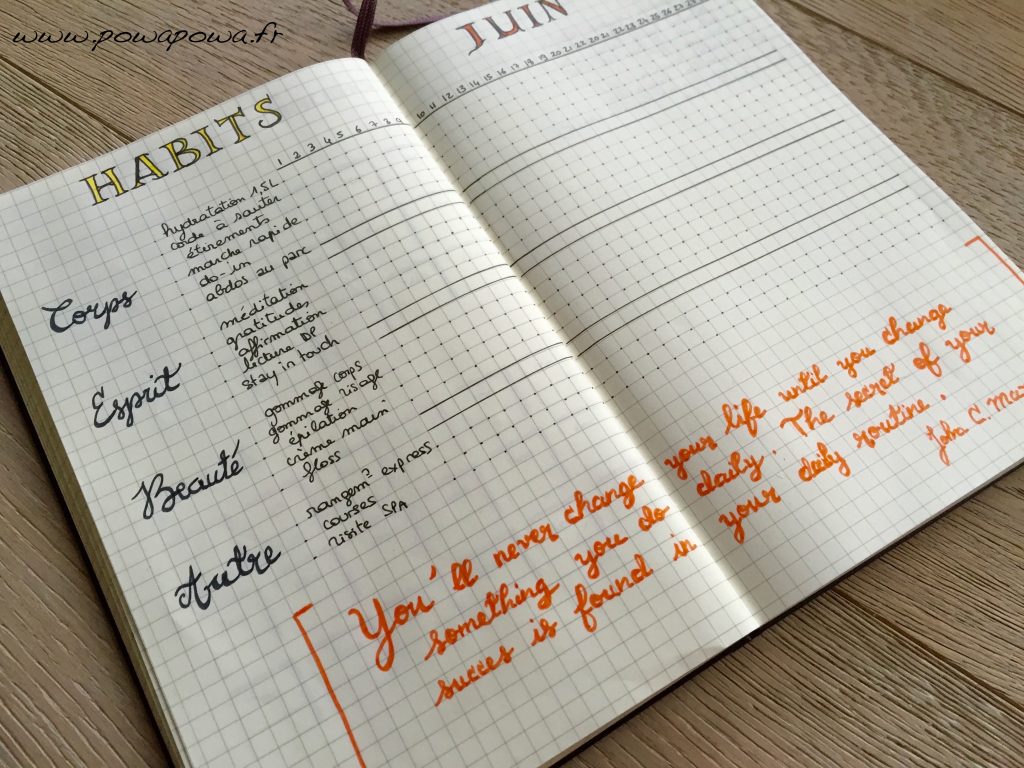 www.powapowa.fr
HABITS
JUIN
1 2 3 4 5 6 7 8 9 10 11 12 13 14 15 16 17 18 19 20 21 22 23 24 25 26 27 28
Corps
hydratation 1,5L
corde à sauter
étirements
marche rapide
do-in
abdos au parc
Esprit
méditation
gratitude,
affirmation
lecture DP
stay in touch
Beauté
gommage corps
gommage visage
épilation
crème main
floss
Autre
rangemt express
courses
visite SPA
You'll never change your life until you change
something you do daily. The secret of your
succes is found in your daily routine.
John C.